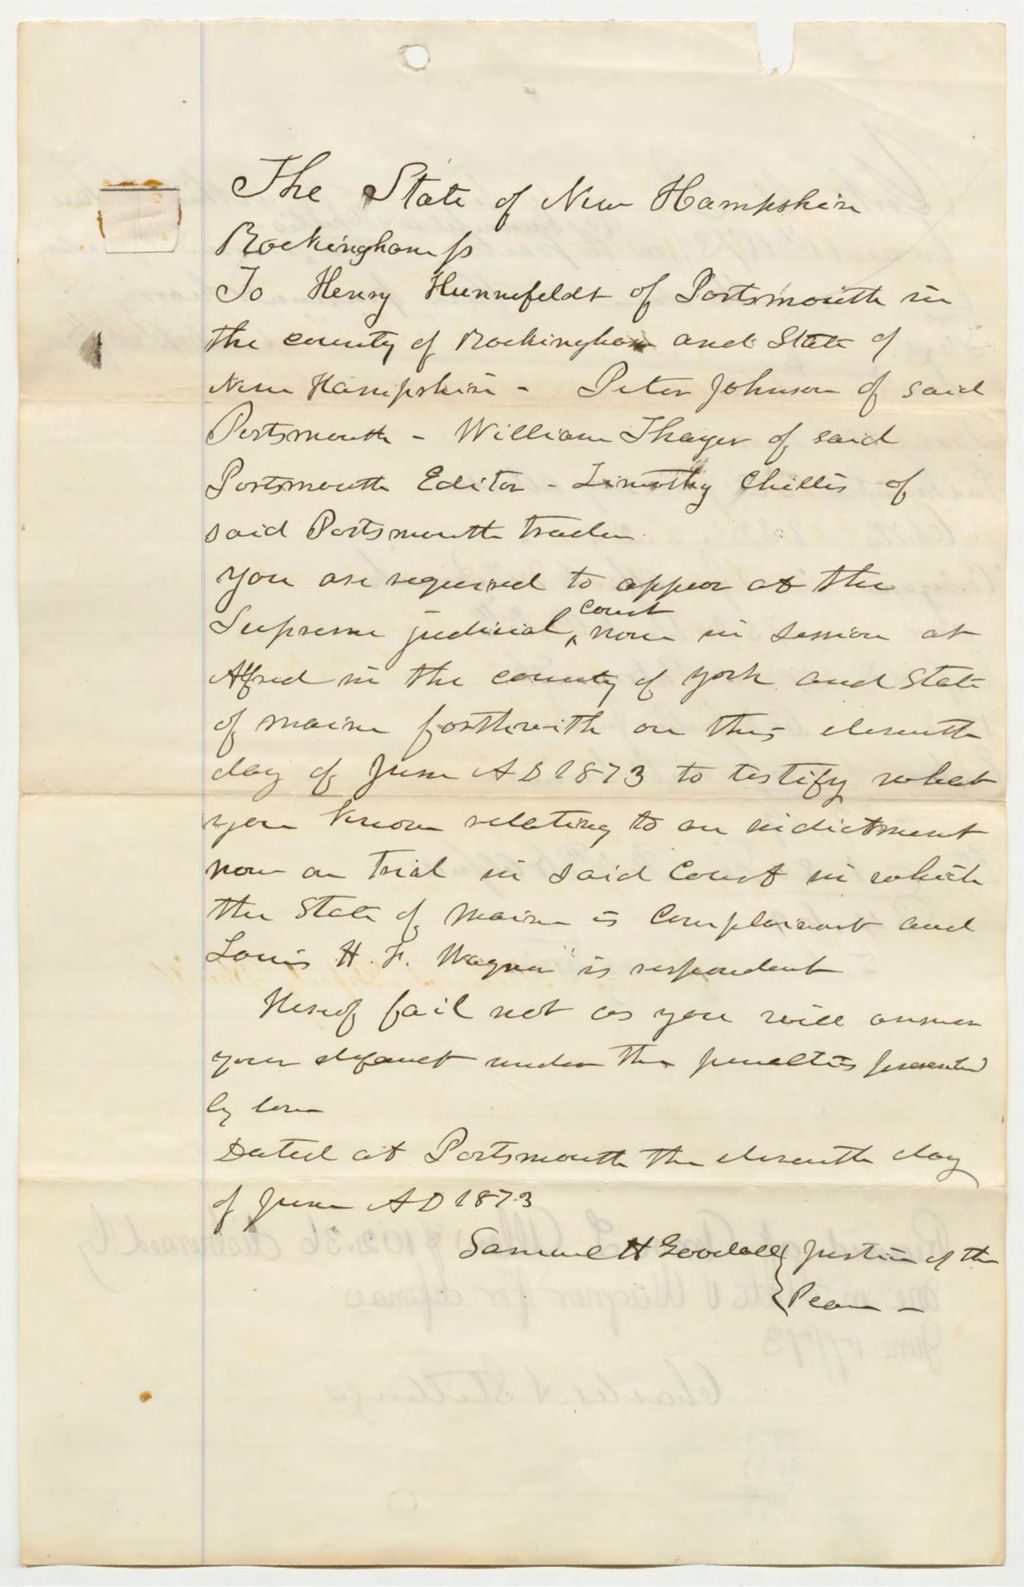 The State of New Hampshire
Rockingham ss
To Henry Hunnefeldt of Portsmouth in
the county of Rockingham and State of
New Hampshire - Peter Johnson of said
Portsmouth - William Thayer of said
Portsmouth Editor - Timothy Chellis of
said Portsmouth trader
You are required to appear at the
Supreme judicial court now in session at
Alfred in the county of York and State
of Maine forthwith on this eleventh
day of June AD 1873 to testify what
you know relating to an indictment
now on trial in said Court in which
the State of Maine is Complainant and
Louis H. F. Wagner is respondent
Hereof fail not as you will answer
your default under the penalties
by law
Dated at Portsmouth the eleventh day
of June AD 1873
Samuel H Goodall Justice of the
Peace -